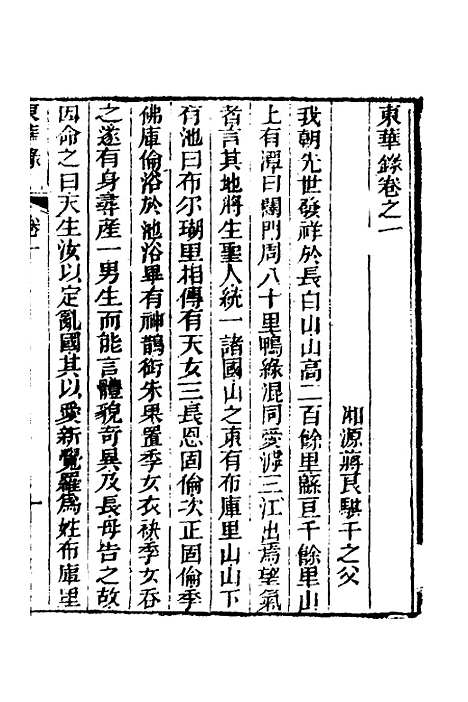 東華錄卷之一
湘源蔣良騏千之父
我朝先世發祥於長白山山高二百餘里緜亘千餘里山
上有潭曰闥門周八十里鴨綠混同愛滹三江出焉望氣
者言其地將生聖人統一諸國山之東有布庫里山山下
有池曰布尔瑚里相傳有天女三長恩固倫次正固倫季
佛庫倫浴於池浴畢有神鵲銜朱果置季女衣袂季女吞
之遂有身尋產一男生而能言體貌奇異及長母告之故
因命之曰天生汝以定亂國其以愛新覺羅爲姓布庫里
東華錄
卷一
一